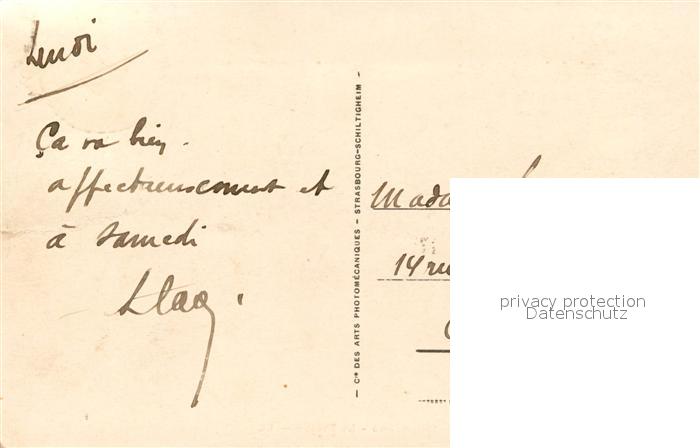 Lundi
Ça va bien.
affectueusement et
à samedi
— Cie DES ARTS PHOTOMÉCANIQUES - STRASBOURG-SCHILTIGHEIM -
Mada
14 ru
privacy protection
Datenschutz